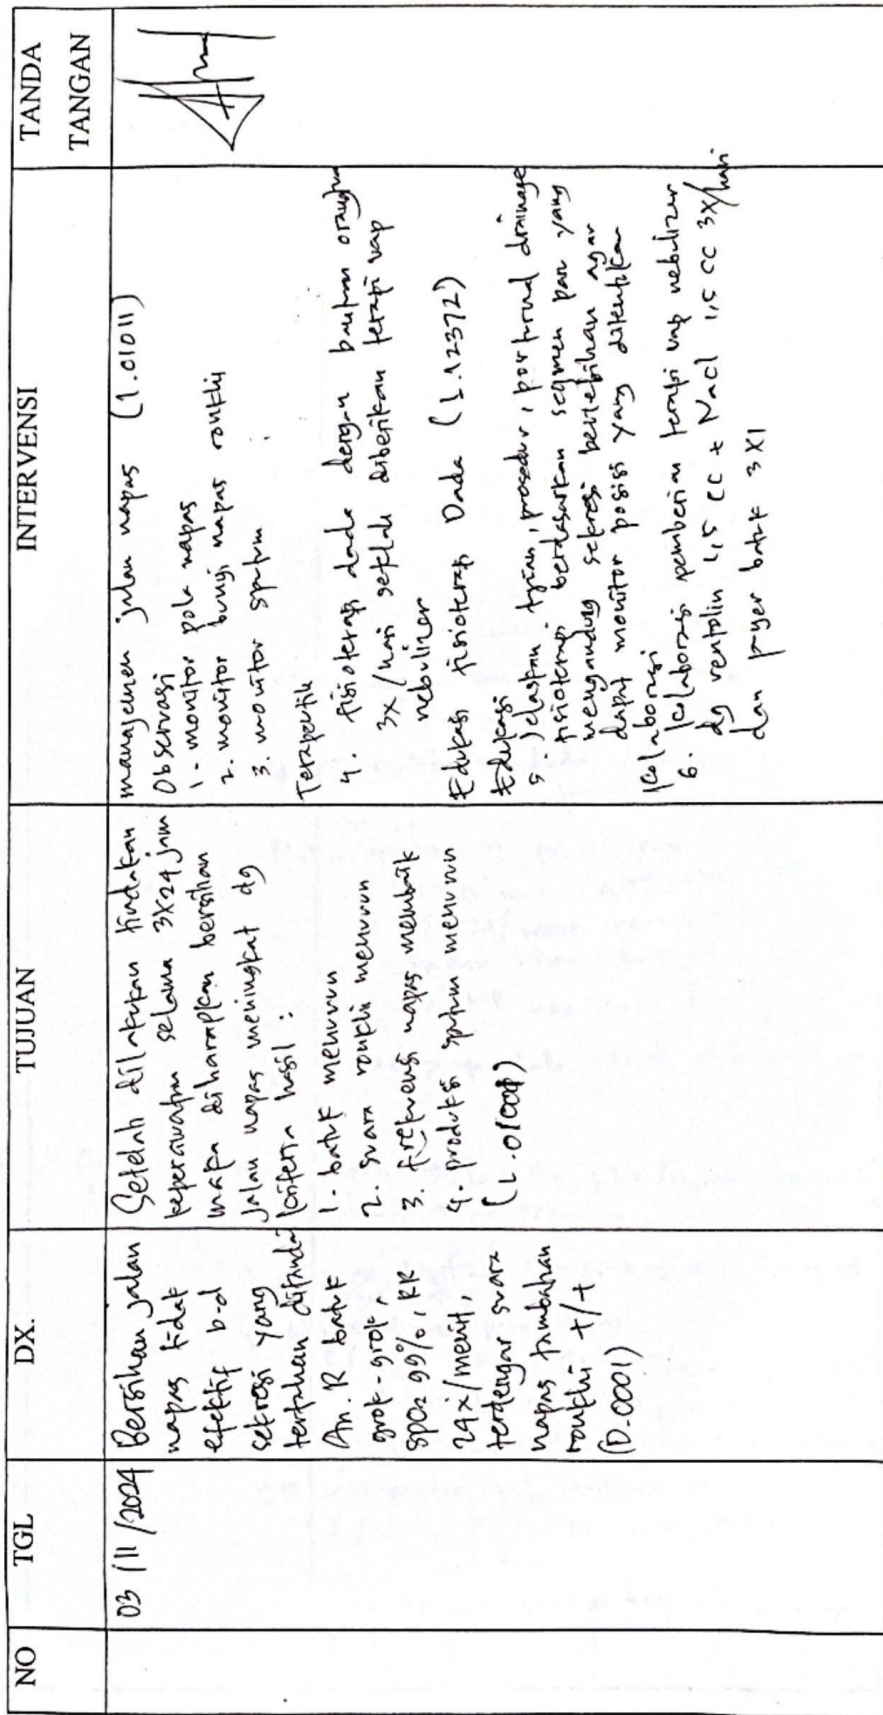 NO
TGL
DX.
TUJUAN
INTERVENSI
TANDA
TANGAN
03/11/2024
Bersihan jalan
napas tidak
efektif b.d
sekresi yang
tertahan ditandai
An. R batuk
grok-grok,
SPO2 99%, RR
24x/menit,
terdengar suara
napas tambahan
ronkhi +/+
(D.0001)
Setelah dilakukan tindakan
keperawatan selama 3x24 jam
maka diharapkan bersihan
jalan napas meningkat dg
kriteria hasil :
1. batuk menurun
2. suara ronkhi menurun
3. frekuensi napas membaik
4. produksi sputum menurun
(L.01001)
manajemen jalan napas (1.01011)
Observasi
1. monitor pola napas
2. monitor bunyi napas ronkhi
3. monitor sputum
Terapeutik
4. fisioterapi dada dengan bantuan orangtua
3x/hari setelah diberikan terapi uap
nebulizer
Edukasi fisioterapi Dada (1.12372)
Edukasi
5. Jelaskan tujuan, prosedur, postural drainage
fisioterapi berdasarkan segmen paru yang
mengandung sekresi berlebihan agar
dapat monitor posisi yang ditentukan
Kolaborasi
6. kolaborasi pemberian terapi uap nebulizer
dg ventolin 1,5 cc + Nacl 1,5 cc 3x/hari
dan puyer batuk 3x1